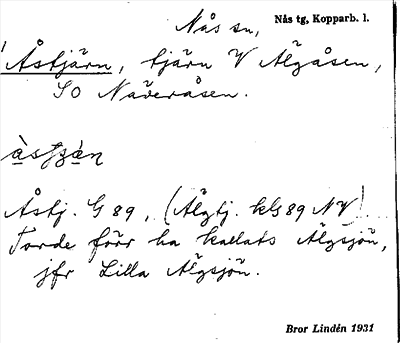 Nås sn, Nås tg, Kopparb. l.
Åstjärn, tjärn V Älgåsen,
SO Näveråsen.
Åstj. G 89, (Älgtj. kls 89 NV).
Torde förr ha kallats Älgsjön,
jfr Lilla Älgsjön.
Bror Lindén 1931